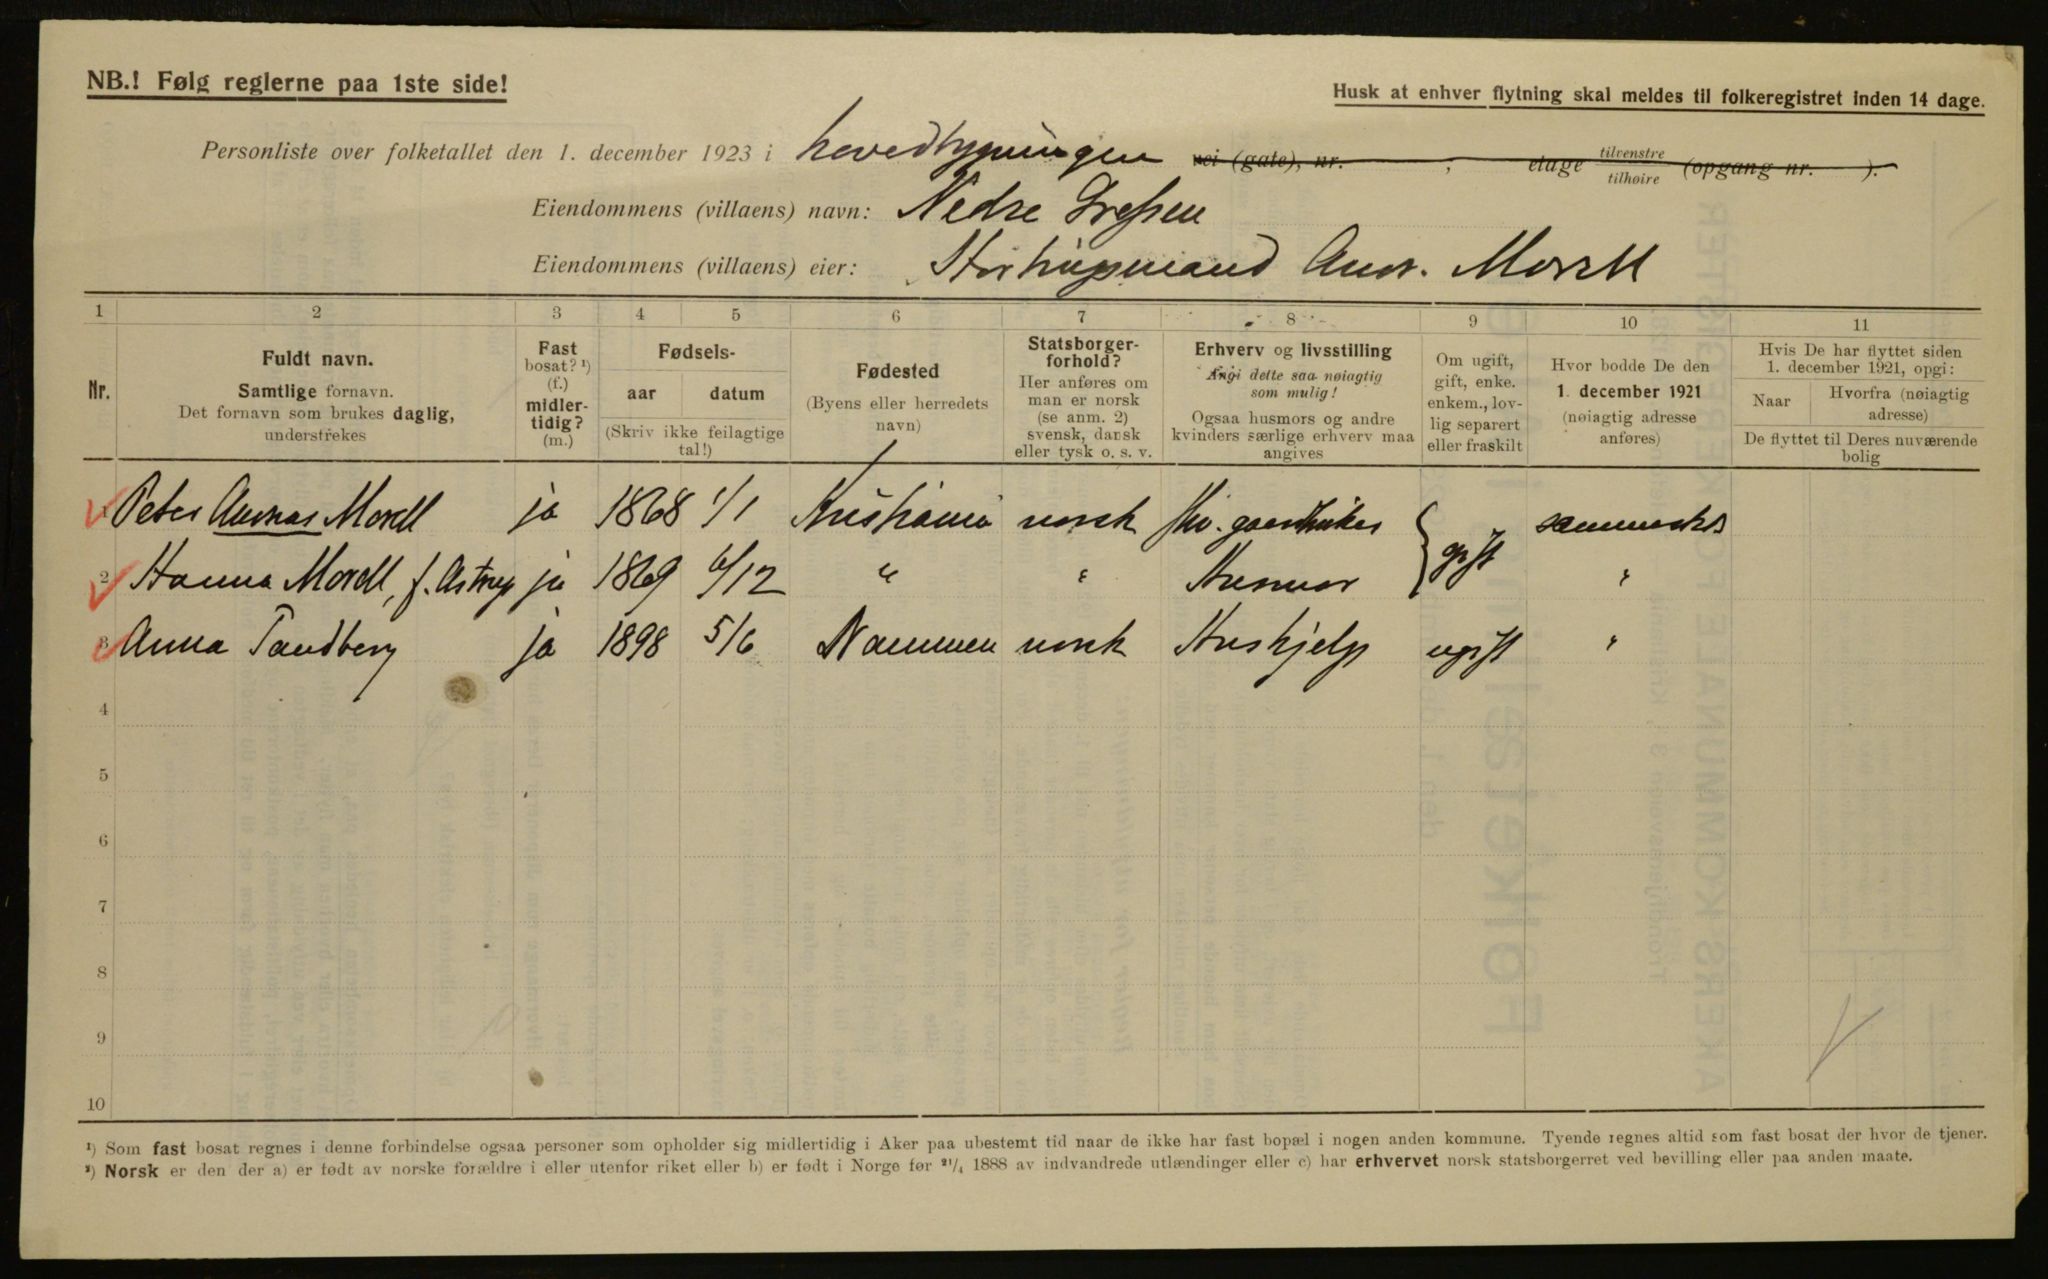 NB.! Følg reglerne paa 1ste side!
Husk at enhver flytning skal meldes til folkeregistret inden 14 dage.
Personliste over folketallet den 1. december 1923 i hovedbygningen vei (gate), nr. , etage tilvenstre tilhøire (opgang nr. ).
Eiendommens (villaens) navn: Nedre
Eiendommens (villaens) eier: Stortingsmand Morell
1 2 3 4 5 6 7 8 9 10 11
Nr.
Fuldt navn.
Samtlige fornavn.
Det fornavn som brukes daglig,
understrekes
Fast
bosat? ¹)
(f.)
midler-
tidig?
(m.)
Fødsels-
aar datum
(Skriv ikke feilagtige
tal!)
Fødested
(Byens eller herredets
navn)
Statsborger-
forhold?
Her anføres om
man er norsk
(se anm. 2)
svensk, dansk
eller tysk o. s. v.
Erhverv og livsstilling
Angi dette saa nøiagtig
som mulig!
Ogsaa husmors og andre
kvinders særlige erhverv maa
angives
Om ugift,
gift, enke.
enkem., lov-
lig separert
eller fraskilt
Hvor bodde De den
1. december 1921
(nøiagtig adresse
anføres)
Hvis De har flyttet siden
1. december 1921, opgi:
Naar
Hvorfra (nøiagtig
adresse)
De flyttet til Deres nuværende
bolig
1 Peter Morell ja 1868 1/1 Kristiania norsk gift sammesteds
2 Hanna Morell, f. Astrup ja 1869 6/12 " " Husmor "
3 Anna Tandberg ja 1898 5/6 norsk Hushjelp ugift "
4
5
6
7
8
9
10
¹) Som fast bosat regnes i denne forbindelse ogsaa personer som opholder sig midlertidig i Aker paa ubestemt tid naar de ikke har fast bopæl i nogen anden kommune. Tyende regnes altid som fast bosat der hvor de tjener.
²) Norsk er den der a) er født av norske forældre i eller utenfor riket eller b) er født i Norge før ²¹/₄ 1888 av indvandrede utlændinger eller c) har erhvervet norsk statsborgerret ved bevilling eller paa anden maate.